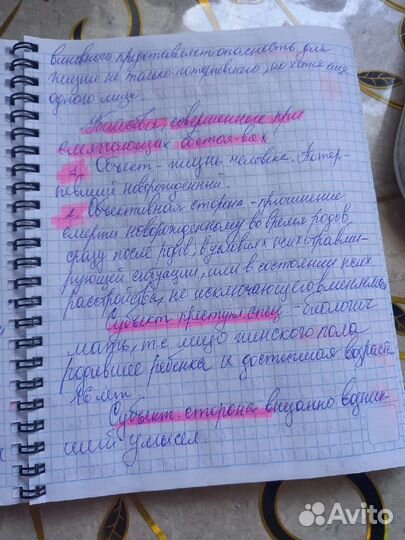 виновного представляет опасность для
жизни не только потерпевшего, но хотя еще
одного лица.
Убийства, совершенные при
смягчающих обстоя-вах
1. Объект - жизнь человека. Потер-
певший новорожденный.
2. Объективная сторона - причинение
смерти новорожденному во время родов,
сразу после родов, в условиях психотравми-
рующей ситуации, или в состоянии псих
расстройства, не исключающего вменяем.
Субъект преступл. спец - биологич
мать, т.е. лицо женского пола
родившее ребенка и достигшая возраста
16 лет.
Субъект. сторона внезапно возник-
ший умысел.
Avito